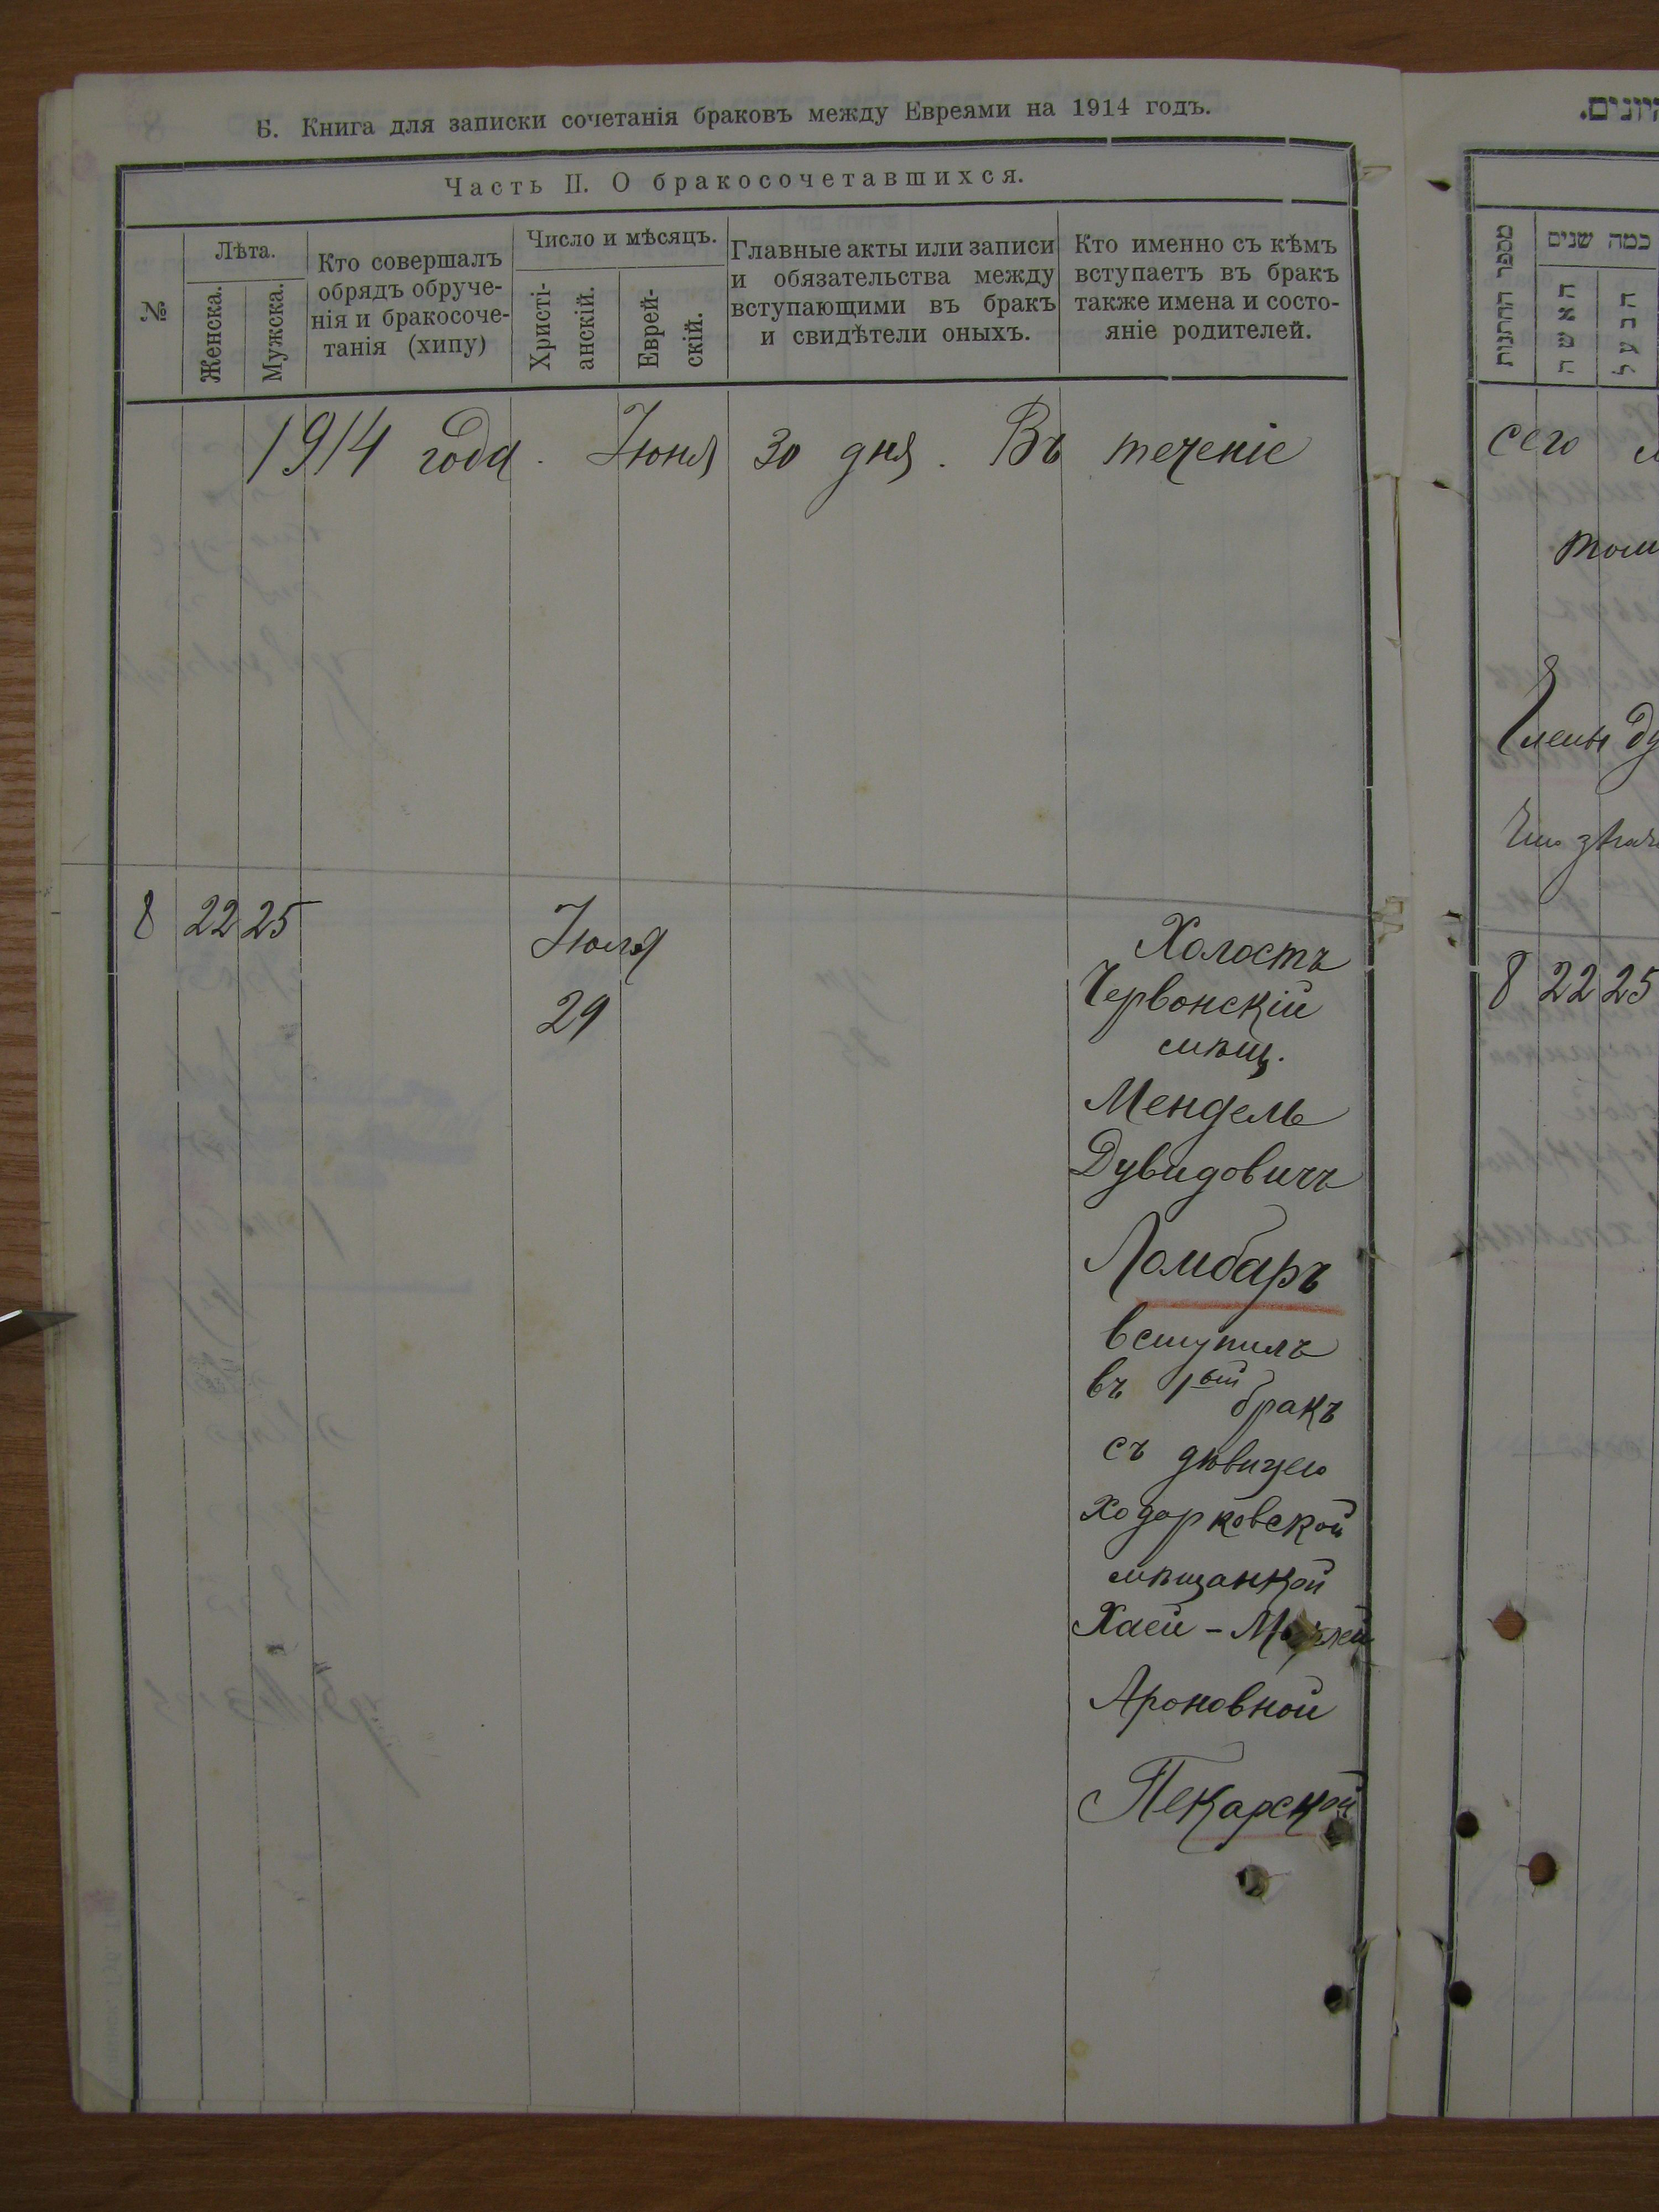 Б. Книга для записки сочетанія браковъ между Евреями на 1914 годъ.
Часть II. О бракосочетавшихся.
№
Лѣта.
Женска.
Мужска.
Кто совершалъ
обрядъ обруче-
нія и бракосоче-
танія (хипу)
Число и мѣсяцъ.
Христі-
анскій.
Еврей-
скій.
Главные акты или записи
и обязательства между
вступающими въ бракъ
и свидѣтели оныхъ.
Кто именно съ кѣмъ
вступаетъ въ бракъ
также имена и состо-
яніе родителей.
1914 года. Іюня 30 дня. Въ теченіе
8 22 25
Іюля
29
Холостъ
Червонскій
мѣщ.
Мендель
Дувидовичъ
Ломбаръ
вступилъ
въ 1ый бракъ
съ дѣвицею
Ходорковской
мѣщанкой
Хаей-
Ароновной
Пекарской
מספר החתנות
כמה שנים
האשה
הבעל
сего
8 22 25